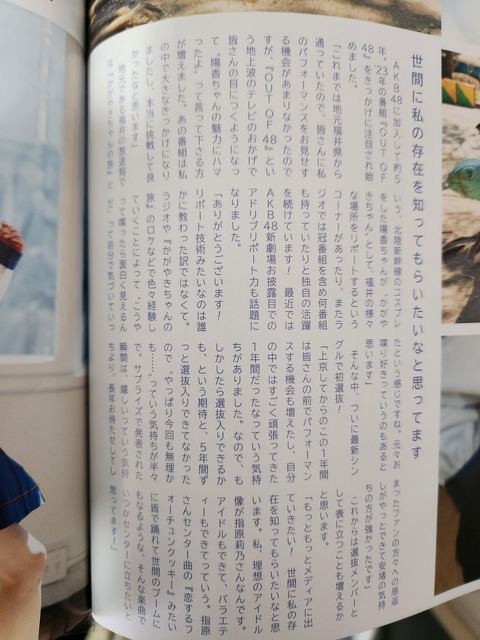 世間に私の存在を知ってもらいたいなと思ってます
AKB48に加入して約5
年。'23年の番組『OUT OF
48』をきっかけに注目され始
めました。
「これまでは地元福井県から
通っていたので、皆さんに私
のパフォーマンスをお見せす
る機会があまりなかったので
すが、『OUT OF 48』とい
う地上波のテレビのおかげで
皆さんの目につくようになっ
て。“陽香ちゃんの魅力にハマ
ったよ”って言って下さる方
が増えました。あの番組は私
の中で大きなきっかけになり
ましたし、本当に挑戦して良
かったなと思います」
地元である福井の放送局で
は『かがやきちゃんの旅』と
いう、北陸新幹線のコスプレ
をした陽香ちゃんが“かがや
きちゃん”として、福井の様々
な場所をリポートするという
コーナーがあったり、またラ
ジオでは冠番組を含め何番組
も持っていたりと独自の活躍
を続けています！最近では
AKB48新劇場お披露目での
アドリブリポート力も話題に
なりました。
「ありがとうございます！
リポート技術みたいなのは誰
かに教わった訳ではなくて。
ラジオや『かがやきちゃんの
旅』のロケなどで色々経験し
ていくことによって、“こうや
って喋ったら面白く見えるん
だ”って自分で気づいていっ
たという感じですね。元々お
喋り好きっていうのもあると
思います」
そんな中、ついに最新シン
グルで初選抜！
「上京してからのこの1年間
は皆さんの前でパフォーマン
スする機会も増えたし、自分
の中ではすごく頑張ってきた
1年間だったなっていう気持
ちがありました。なので、も
しかしたら選抜入りできるか
も、という期待と、5年間ず
っと選抜入りできてなかった
ので“やっぱり今回も無理か
も……”っていう気持ちが半々
で。サプライズで発表された
瞬間は、嬉しいっていう気持
ちより、長年お待たせしてし
まったファンの方々への恩返
しがやっとできて安堵の気持
ちの方が強かったです」
これからは選抜メンバーと
して表に立つことも増えるか
と思います。
「もっともっとメディアに出
ていきたい！世間に私の存
在を知ってもらいたいなと思
います。私、理想のアイドル
像が指原莉乃さんなんです。
アイドルもできて、バラエテ
ィーもできてっていう。指原
さんセンター曲の『恋するフ
ォーチュンクッキー』みたい
に皆で踊れて世間のブームに
もなるような、そんな楽曲で
いつかセンターに立ちたいと
思ってます！」